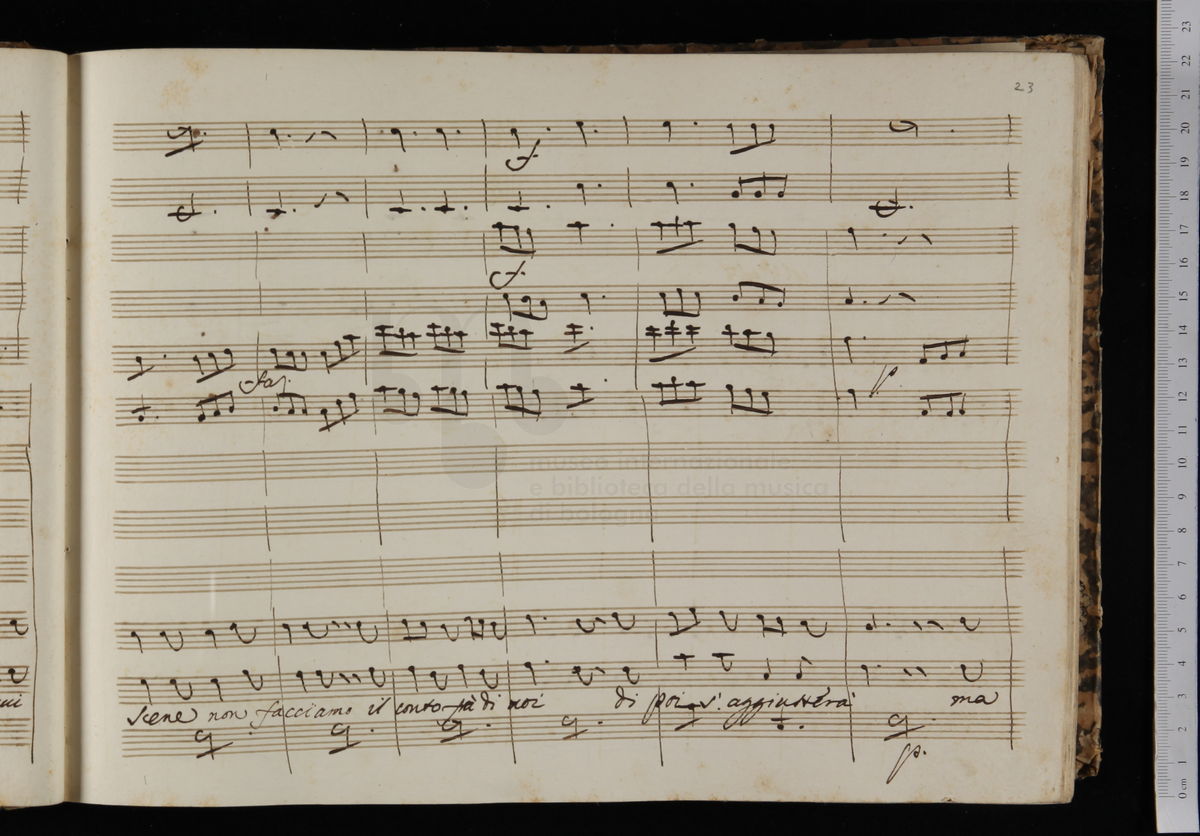 23
f.
f.
p
scene non facciamo il conto frà di noi di poi s'aggiusterà ma
p.
museo internazionale
e biblioteca della musica
di bologna
23
22
21
20
19
18
17
16
15
14
13
12
11
10
9
8
7
6
5
4
3
2
1
0 cm